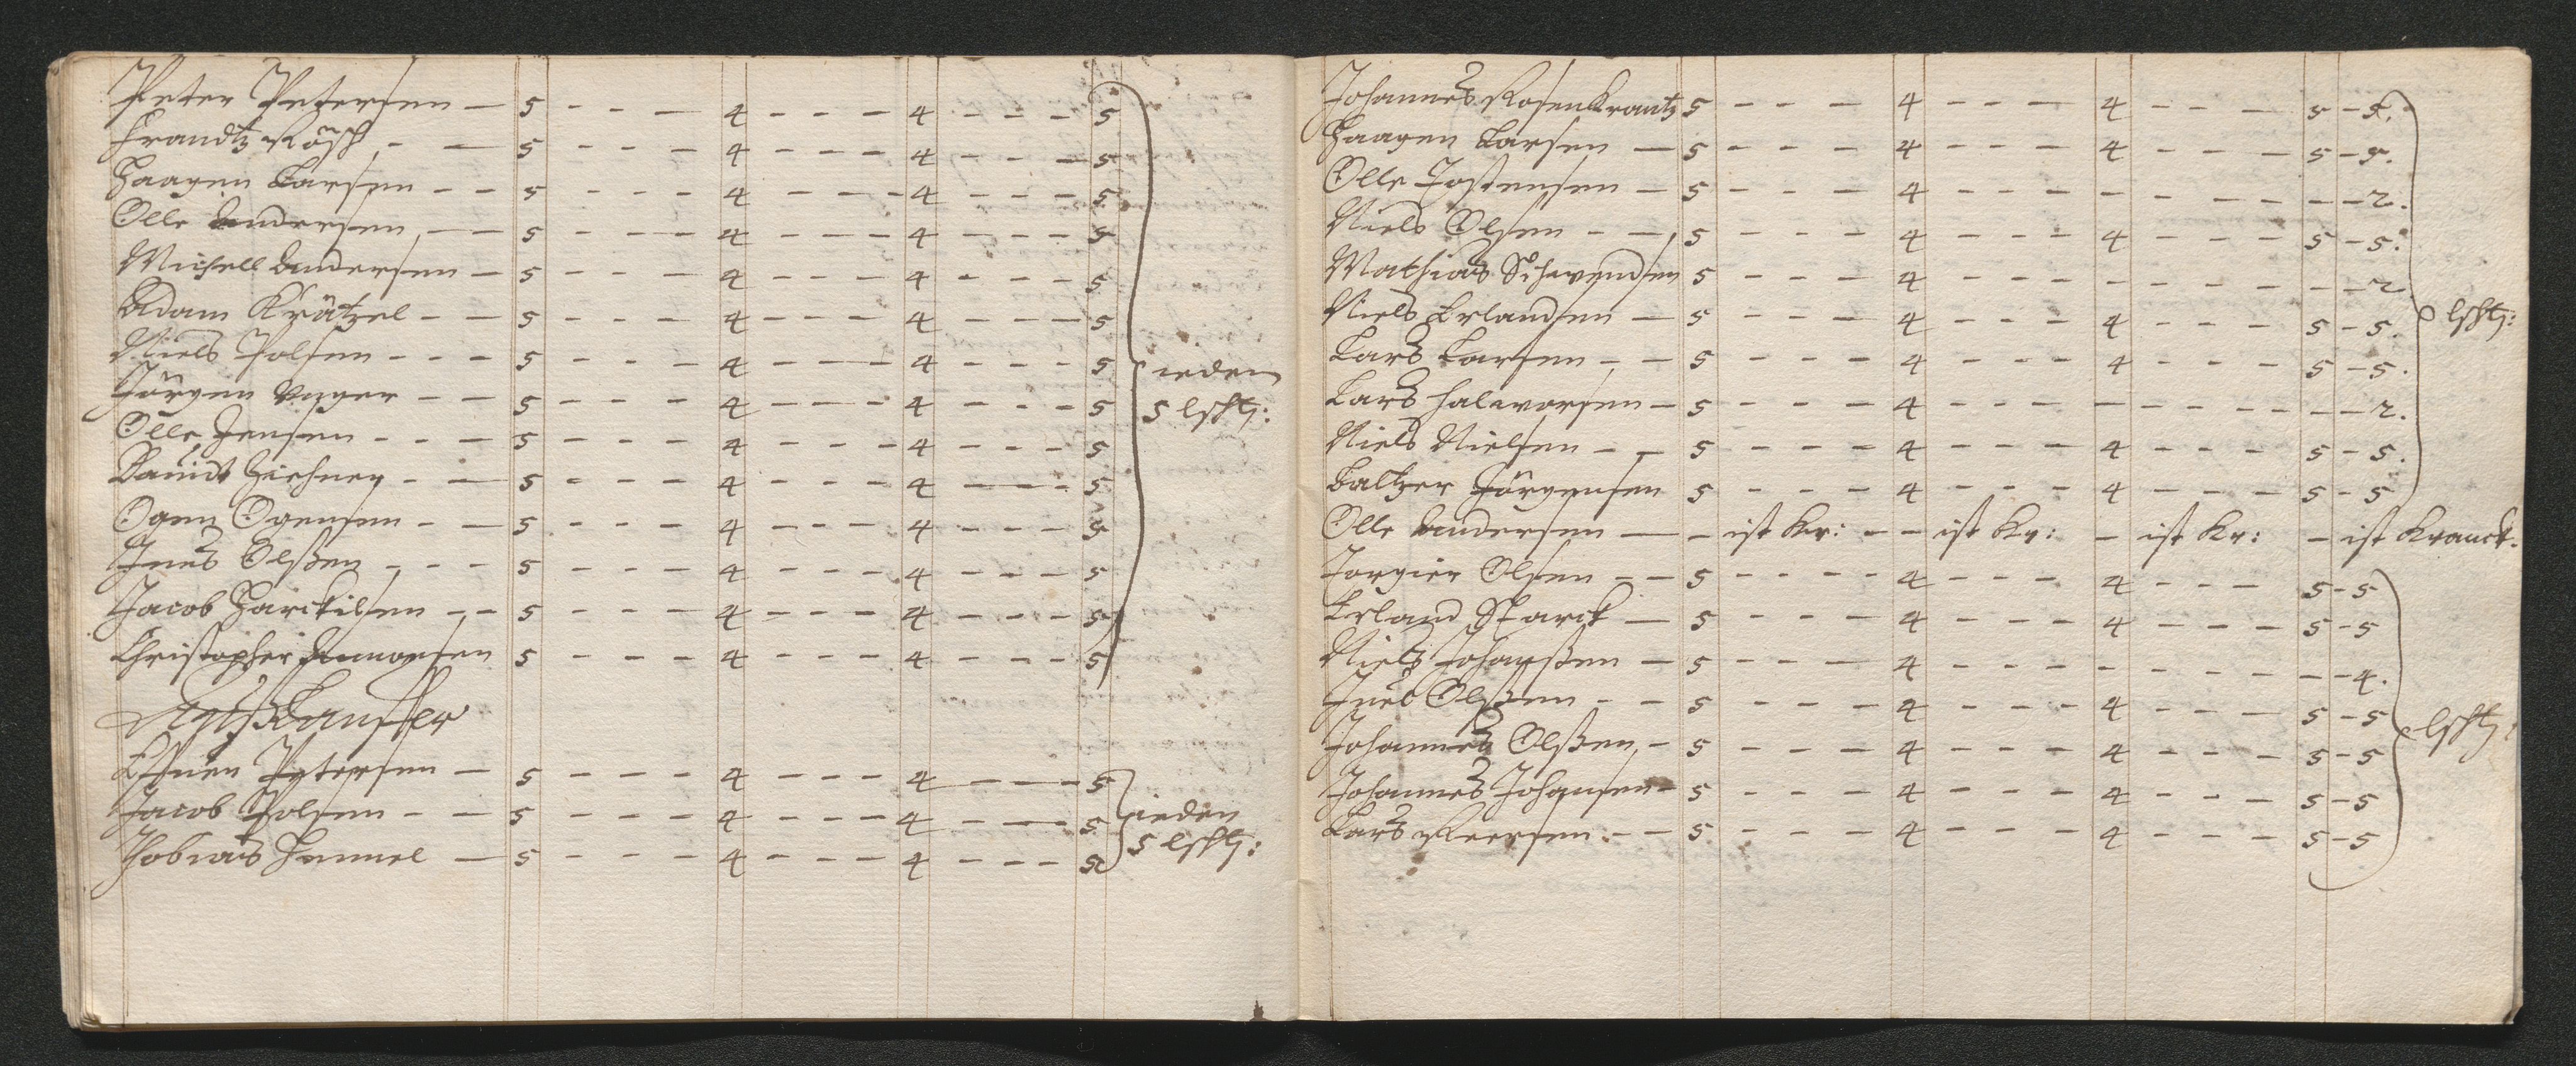 Peter Petersen — 5 - - - 4 - - - 4 - - - 5
Frandtz Rösch - — 5 - - - 4 - - - 4 - - - 5
Haagen Larsen - - 5 - - - 4 - - - 4 - - - 5
Olle Andersen — 5 - - - 4 - - - 4 - - - 5
Michell Andersen — 5 - - - 4 - - - 4 - - - 5
Adam Krätzel - - 5 - - - 4 - - - 4 - - - 5
Niels Polsen - - - 5 - - - 4 - - - 4 - - - 5 ieden
Jörgen Unger - - 5 - - - 4 - - - 4 - - - 5 5 lschtz:
Olle Jensen - - - 5 - - - 4 - - - 4 - - - 5
Dauidt Zichner - — 5 - - - 4 - - - 4 - - - 5
Ogen Ogensen - — 5 - - - 4 - - - 4 - - - 5
Jens Olßen - - - 5 - - - 4 - - - 4 - - - 5
Jacob Harckilsen - - 5 - - - 4 - - - 4 - - - 5
Christopher 5 - - - 4 - - - 4 - - - 5
Petersen — 5 - - - 4 - - - 4 - - - 5
Jacob Polsen - - 5 - - - 4 - - - 4 - - - 5 ieden
Tobias Hemmel — 5 - - - 4 - - - 4 - - - 5 5 lschtz:
Johannes Rosenkrantz 5 - - - 4 - - - 4 - - - 5 - 5.
Haagen Larsen — 5 - - - 4 - - - 4 - - - 5 - 5.
Olle Jostensen — 5 - - - 4 - - - - - - - - 2.
Niels Olsen - - 5 - - - 4 - - - 4 - - - 5 - 5.
Mathias Schwendsen 5 - - - 4 - - - - - - - - 2
Niels Erlandsen — 5 - - - 4 - - - 4 - - - 5 - 5. lschtz:
Lars Larsen - - 5 - - - 4 - - - 4 - - - 5 - 5.
Lars Halworsen — 5 - - - 4 - - - - - - - - 2.
Niels Nielsen - - 5 - - - 4 - - - 4 - - - 5 - 5.
Baltzer Jörgensen 5 - - - 4 - - - 4 - - - 5 - 5
Olle Andersen — - ist kr: - - ist kr: - ist kr: - ist kranck.
Jorgier Olsen - - 5 - - - 4 - - - 4 - - - 5 - 5
Erland Starck — 5 - - - 4 - - - 4 - - - 5 - 5
Nielß Johanßen — 5 - - - 4 - - - - - - - - 4.
Jens Olßen - - 5 - - - 4 - - - 4 - - - 5 - 5 lschtz:
Johannes Olßen - 5 - - - 4 - - - 4 - - - 5 - 5
Johannes Johansen - 5 - - - 4 - - - 4 - - - 5 - 5
Lars Reersen - - 5 - - - 4 - - - 4 - - - 5 - 5